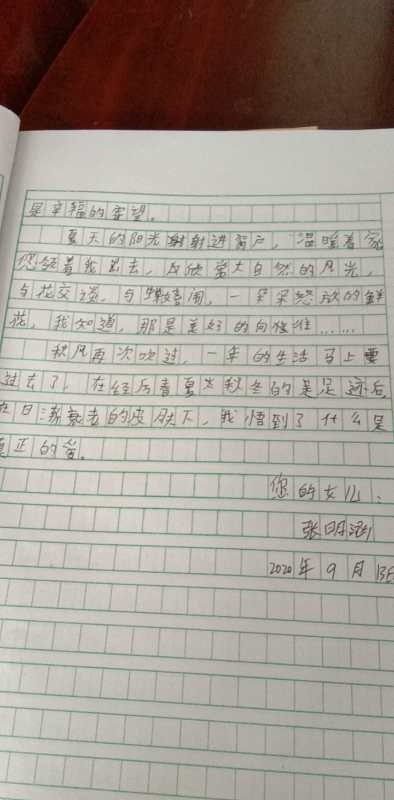 是幸福的守望。
夏天的阳光射进窗户，温暖着家
您领着我出去，欣赏大自然的风光，
与花交谈，与蝉嬉闹，一朵朵怒放的鲜
花，我知道，那是美好的向往……
秋风再次吹过，一年的生活马上要
过去了，在经历春夏秋冬的足迹后
在日渐衰老的皮肤下，我悟到了什么是
真正的爱。
您的女儿：
张明
2020年9月13日